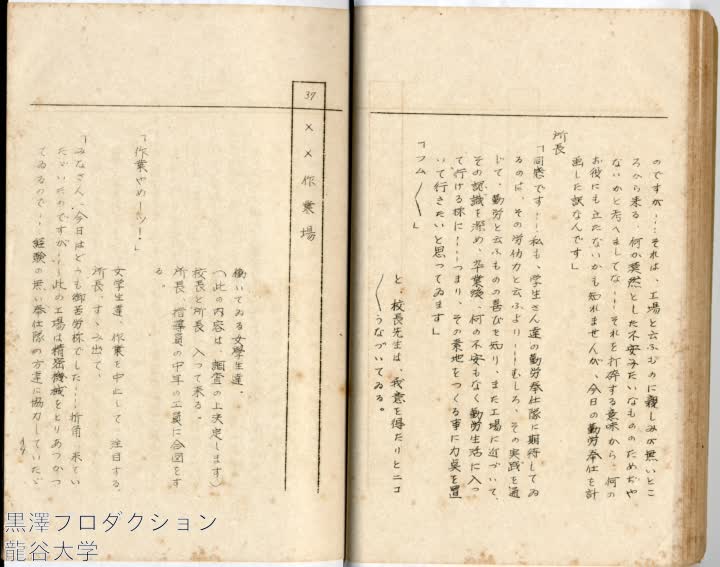 のですが……それは、工場と云ふものに親しみが無いとこ
ろから来る、何か漠然とした不安みたいなもののためぢや
ないかと考へましてな……それを打砕する意味から、何の
お役にも立たないかも知れませんが、今日の勤労奉仕を計
画した訳なんです」
所長
「同感です……私も、学生さん達の勤労奉仕隊に期待してゐ
るのは、その労仂力と云ふより……むしろ、その実践を通
じて、勤労と云ふものの喜びを知り、また工場に近づいて、
その認識を深め、卒業後、何の不安もなく勤労生活に入っ
て行ける様に……つまり、その素地をつくる事に力点を置
いて行きたいと思ってゐます」
「フム〱」
と、校長先生は、我意を得たりとニコ
〱うなづいてゐる。
37
××作業場
働いてゐる女学生達。
(此の内容は、調査の上決定します)
校長と所長、入って来る。
所長、指導員の中年の工員に合図をす
る。
「作業やめーッ!」
女学生達、作業を中止して、注目する。
所長、すゝみ出て、
「みなさん、今日はどうも御苦労様でした……折角、来てい
たゞいたのですが……此の工場は精密機械をとりあつかつ
てゐるので……経験の無い奉仕隊の方達に協力していたゞ
黒澤プロダクション
龍谷大学